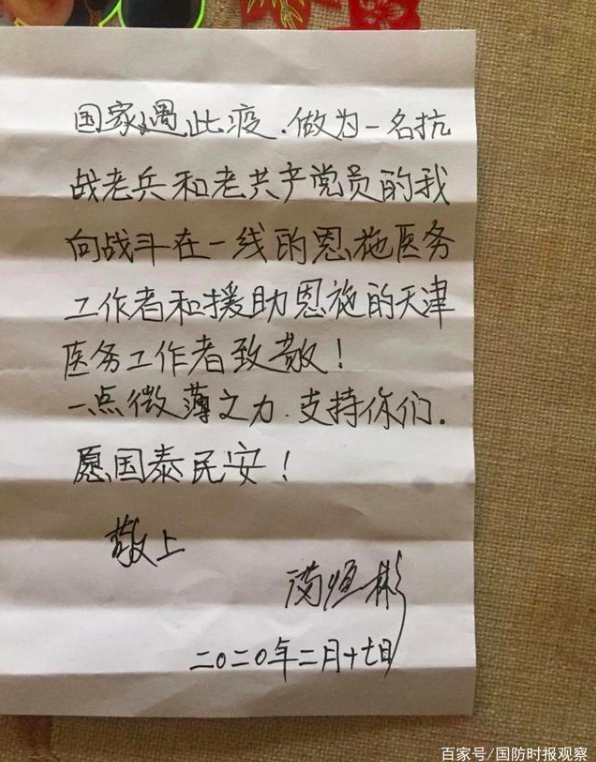 国家遇此疫.做为一名抗
战老兵和老共产党员的我
向战斗在一线的恩施医务
工作者和援助恩施的天津
医务工作者致敬！
一点微薄之力.支持你们.
愿国泰民安！
敬上
恒彬
二〇二〇年二月十七日
百家号/国防时报观察